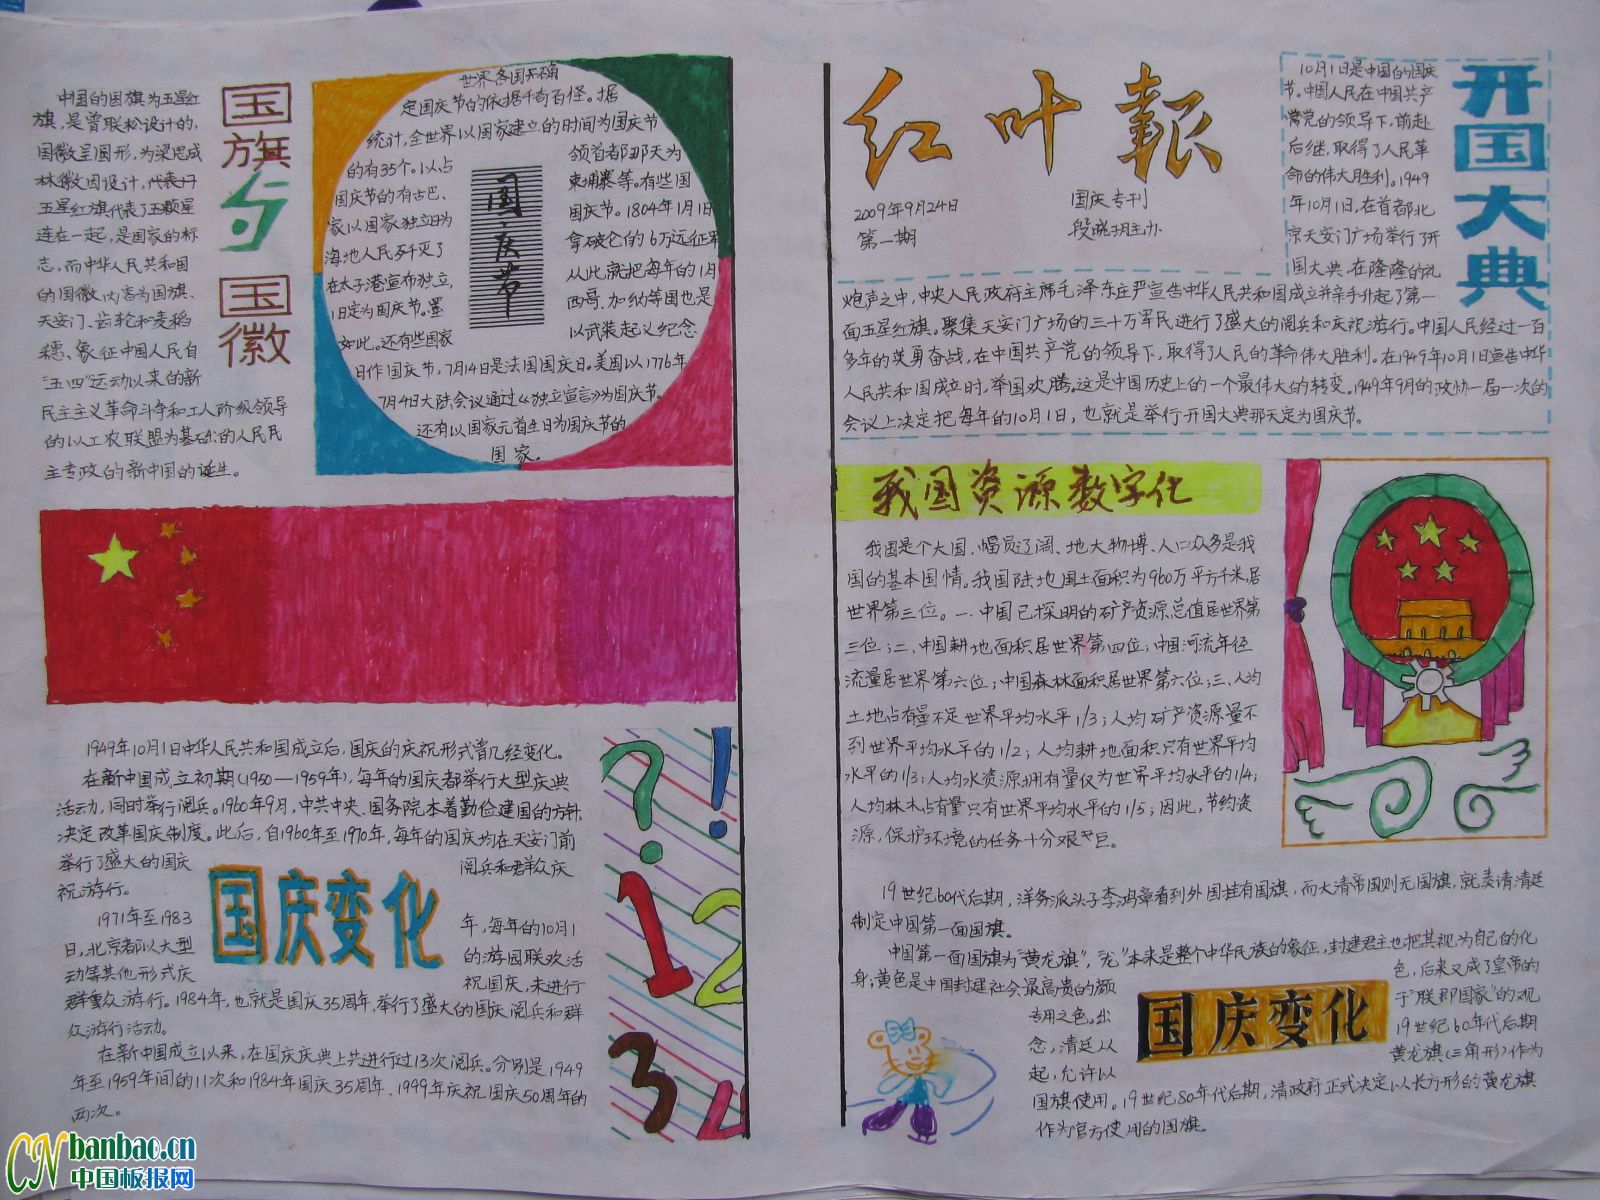 国旗与国徽
中国的国旗为五星红
旗，是曾联松设计的，
国徽呈圆形，为梁思成
林徽因设计，代表
五星红旗代表了五颗星
连在一起，是国家的标
志，而中华人民共和国
的国徽，内容为国旗、
天安门、齿轮和麦稻
穗、象征中国人民自
“五四”运动以来的新
民主主义革命斗争和工人阶级领导
的以工农联盟为基础的人民民
主专政的新中国的诞生。
国庆节
世界各国确
定国庆节的依据千奇百怪。据
统计，全世界以国家建立的时间为国庆节
的有35个。以占 领首都那天为
国庆节的有古巴、 柬埔寨等。有些国
家以国家独立日为 国庆节。1804年1月1日
海地人民歼灭了 拿破仑的6万远征军
在太子港宣布独立， 从此就把每年的1月
1日定为国庆节。墨 西哥、加纳等国也是
如此。还有些国家 以武装起义纪念
日作国庆节，7月14日是法国国庆日。美国以1776年
7月4日大陆会议通过《独立宣言》为国庆节。
还有以国家元首生日为国庆节的
国家。
1949年10月1日中华人民共和国成立后，国庆的庆祝形式曾几经变化。
在新中国成立初期(1950—1959年)，每年的国庆都举行大型庆典
活动，同时举行阅兵。1960年9月，中共中央、国务院本着勤俭建国的方针，
决定改革国庆制度。此后，自1960年至1970年，每年的国庆均在天安门前
举行了盛大的国庆 阅兵和群众庆
祝游行。
国庆变化
1971年至1983 年，每年的10月1
日，北京都以大型 的游园联欢活
动等其他形式庆 祝国庆，未进行
群众游行。1984年，也就是国庆35周年，举行了盛大的国庆阅兵和群
众游行活动。
在新中国成立以来，在国庆庆典上共进行过13次阅兵。分别是1949
年至1959年间的11次和1984年国庆35周年、1999年庆祝国庆50周年的
两次。
? !
1 2
3 4
红叶报
2009年9月24日 国庆专刊
第一期
开国大典
10月1日是中国的国庆
节。中国人民在中国共产
党的领导下，前赴
后继，取得了人民革
命的伟大胜利。1949
年10月1日，在首都北
京天安门广场举行了开
国大典，在隆隆的礼
炮声之中，中央人民政府主席毛泽东庄严宣告中华人民共和国成立并亲手升起了第一
面五星红旗。聚集天安门广场的三十万军民进行了盛大的阅兵和庆祝游行。中国人民经过一百
多年的英勇奋战，在中国共产党的领导下，取得了人民的革命伟大胜利。在1949年10月1日宣告中华
人民共和国成立时，举国欢腾。这是中国历史上的一个最伟大的转变。1949年9月的政协一届一次的
会议上决定把每年的10月1日，也就是举行开国大典那天定为国庆节。
我国资源数字化
我国是个大国、幅员辽阔、地大物博、人口众多是我
国的基本国情。我国陆地国土面积为960万平方千米，居
世界第三位。一、中国已探明的矿产资源总值居世界第
三位；二、中国耕地面积居世界第四位；中国河流年径
流量居世界第六位；中国森林面积居世界第六位；三、人均
土地占有量不足世界平均水平1/3；人均矿产资源量不
到世界平均水平的1/2；人均耕地面积只有世界平均
水平的1/3；人均水资源拥有量仅为世界平均水平的1/4；
人均林木占有量只有世界平均水平的1/5；因此，节约资
源，保护环境的任务十分艰巨。
19世纪60代后期，洋务派头子李鸿章看到外国挂有国旗，而大清帝国则无国旗，就奏请清廷
制定中国第一面国旗。
中国第一面国旗为“黄龙旗”，“龙”本来是整个中华民族的象征，封建君主也把其视为自己的化
身；黄色是中国封建社会最高贵的颜 色，后来又成了皇帝的
专用之色。出 于“联邦国家”的观
念，清廷从 19世纪60年代后期
起，允许以 黄龙旗(三角形)作为
国庆变化
国旗使用。19世纪80年代后期，清政府正式决定以长方形的黄龙旗
作为官方使用的国旗。
CN banbao.cn
中国板报网